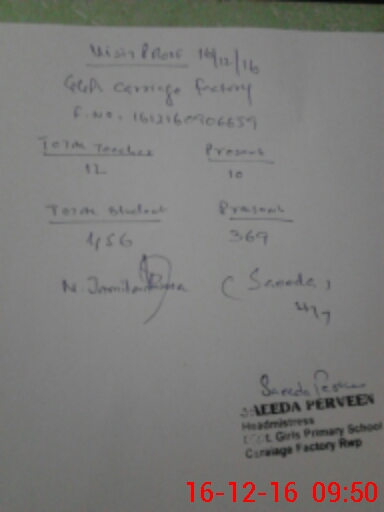 Visit Proof 16/12/16
GGPS Carriage Factory
F.No. 1612160906659
Total Teacher Present
12 10
Total Student Present
456 369
(Saeeda)
Saeeda Perveen
SAEEDA PERVEEN
Headmistress
Girls Primary School
Carraiage Factory Rwp
16-12-16 09:50